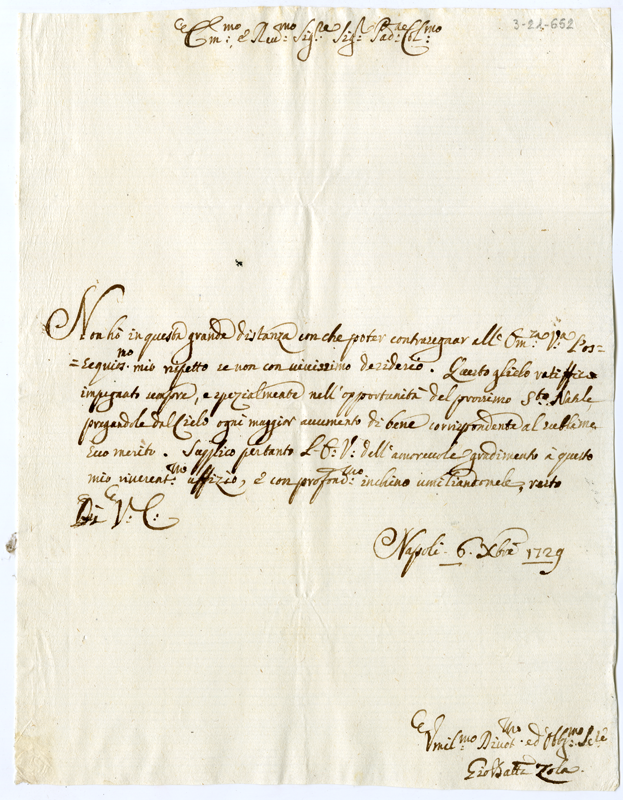 3-21-652
Em:mo e Reu:mo Sig:re Sig:r Pad:ne Col:mo
Non hò in questa grande distanza con che poter contrasegnar all' Em:za V:ra l'os=
=sequiss:mo mio rispetto se non con viuissimo desiderio. Questo glielo ratiffico
impegnato sempre, e spezialmente nell'opportunità del prossimo S:to Natale,
pregandole dal Cielo ogni maggior aumento di bene corrispondente al sublime
suo merito. Supplico pertanto L'E: V: dell'amoreuole gradimento à questo
mio riuerent:mo uffizio, e con profond:mo inchino umiliandomele, resto
Di V: E:
Napoli 6. Xbre 1729
Vmil:mo Diuot:mo ed Obl:mo Se:re
Gio Batta Zola.